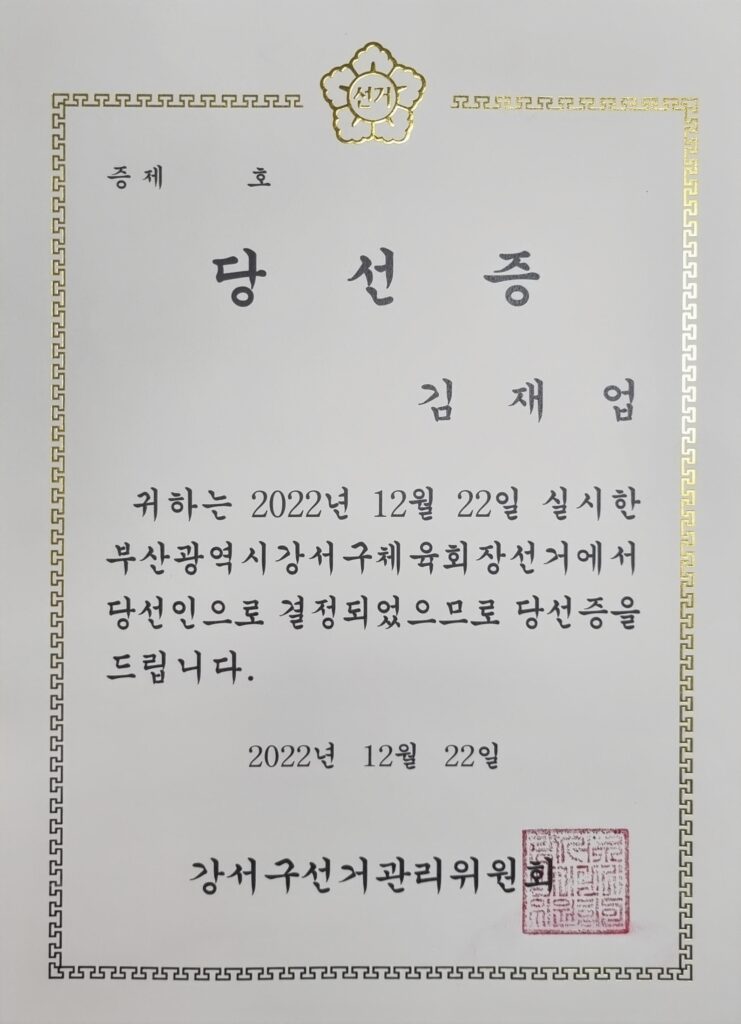 선거
증 제 호
당 선 증
김 재 업
귀하는 2022년 12월 22일 실시한
부산광역시강서구체육회장선거에서
당선인으로 결정되었으므로 당선증을
드립니다.
2022년 12월 22일
강서구선거관리위원회